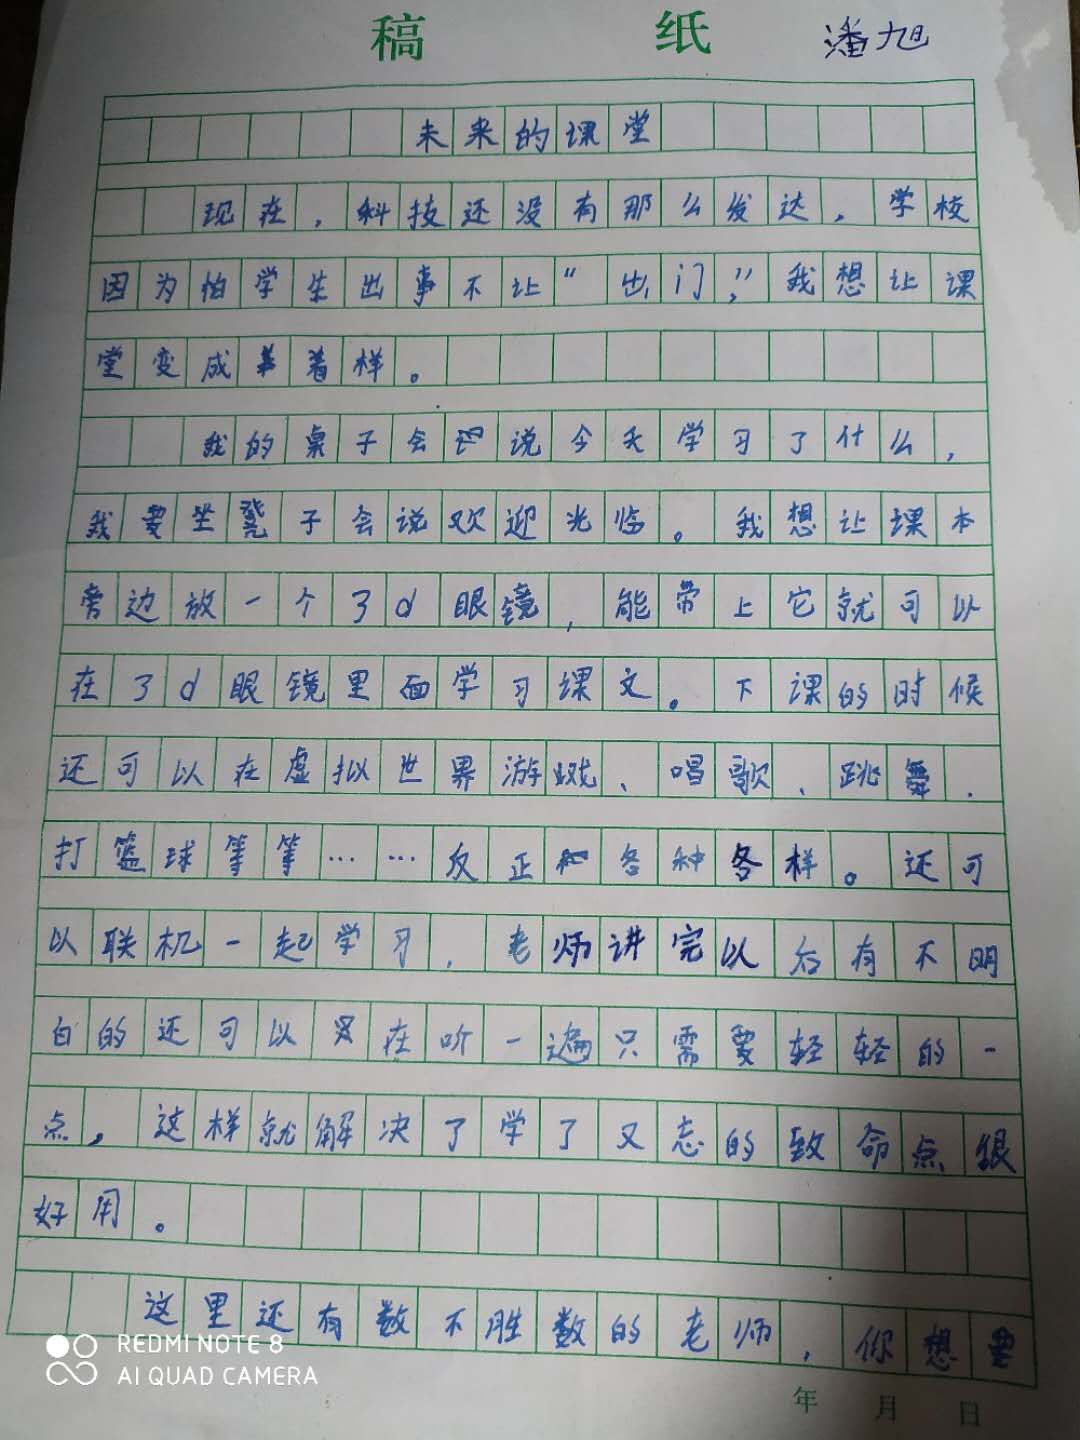 稿 纸 潘旭
未来的课堂
现在，科技还没有那么发达，学校
因为怕学生出事不让“出门”，我想让课
堂变成着样。
我的桌子会说今天学习了什么，
我要坐凳子会说欢迎光临。我想让课本
旁边放一个3d眼镜，能带上它就可以
在3d眼镜里面学习课文。下课的时候
还可以在虚拟世界游戏、唱歌、跳舞.
打篮球等等……反正各种各样。还可
以联机一起学习，老师讲完以后有不明
白的还可以在听一遍只需要轻轻的一
点，这样就解决了学了又忘的致命点很
好用。
这里还有数不胜数的老师，你想要
年 月 日
REDMI NOTE 8
AI QUAD CAMERA